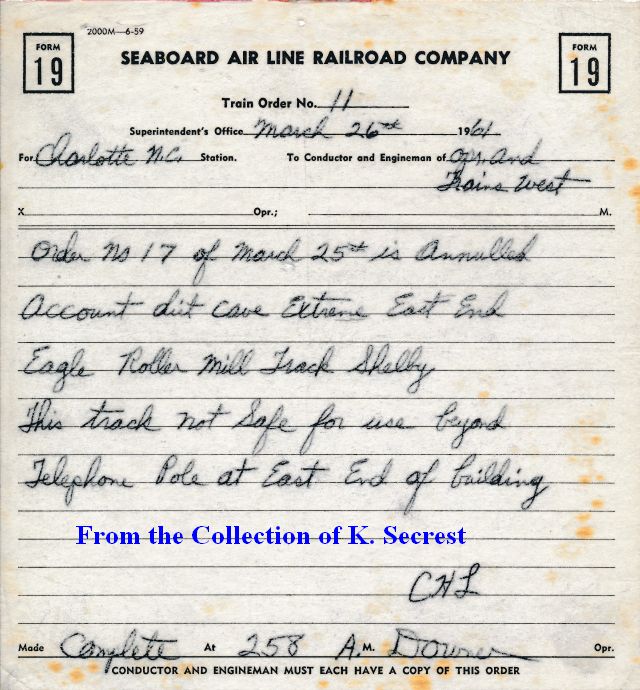 2000M—6-59
FORM 19
SEABOARD AIR LINE RAILROAD COMPANY
FORM 19
Train Order No. 11
Superintendent's Office March 26th 1961
For Charlotte N.C. Station. To Conductor and Engineman of Opr. and
Trains West
X Opr.; M.
Order No 17 of March 25th is Annulled
Account dirt cave Extreme East End
Eagle Roller Mill Track Shelby
This track not Safe for use beyond
Telephone Pole at East End of building
From the Collection of K. Secrest
CHL
Made Complete At 258 A.M. Downer Opr.
CONDUCTOR AND ENGINEMAN MUST EACH HAVE A COPY OF THIS ORDER